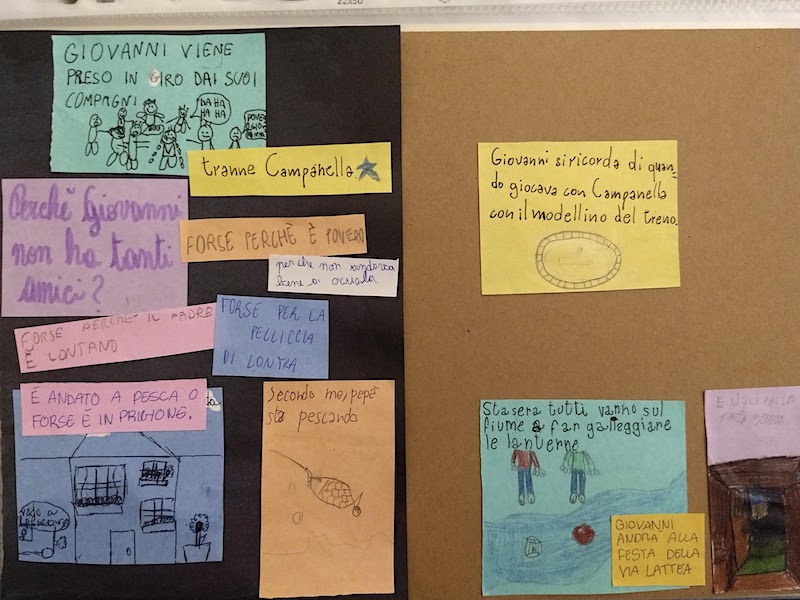 GIOVANNI VIENE
PRESO IN GIRO DAI SUOI
COMPAGNI
HA HA
HA HA
tranne Campanella
Perchè Giovanni
non ha tanti
amici?
FORSE PERCHÈ È POVERO
perche non andava
bene a
FORSE PERCHÈ IL PADRE
È LONTANO
FORSE PER LA
PELLICCIA
DI LONTRA
È ANDATO A PESCA O
FORSE È IN PRIGIONE.
VADO A
Secondo me, pepè
sta pescando
Giovanni si ricorda di quan
do giocava con Campanella
con il modellino del treno.
Stasera tutti vanno sul
fiume a far galleggiare
le lanterne
GIOVANNI
ANDRÀ ALLA
FESTA DELLA
VIA LATTEA
E USCÌ DALLA